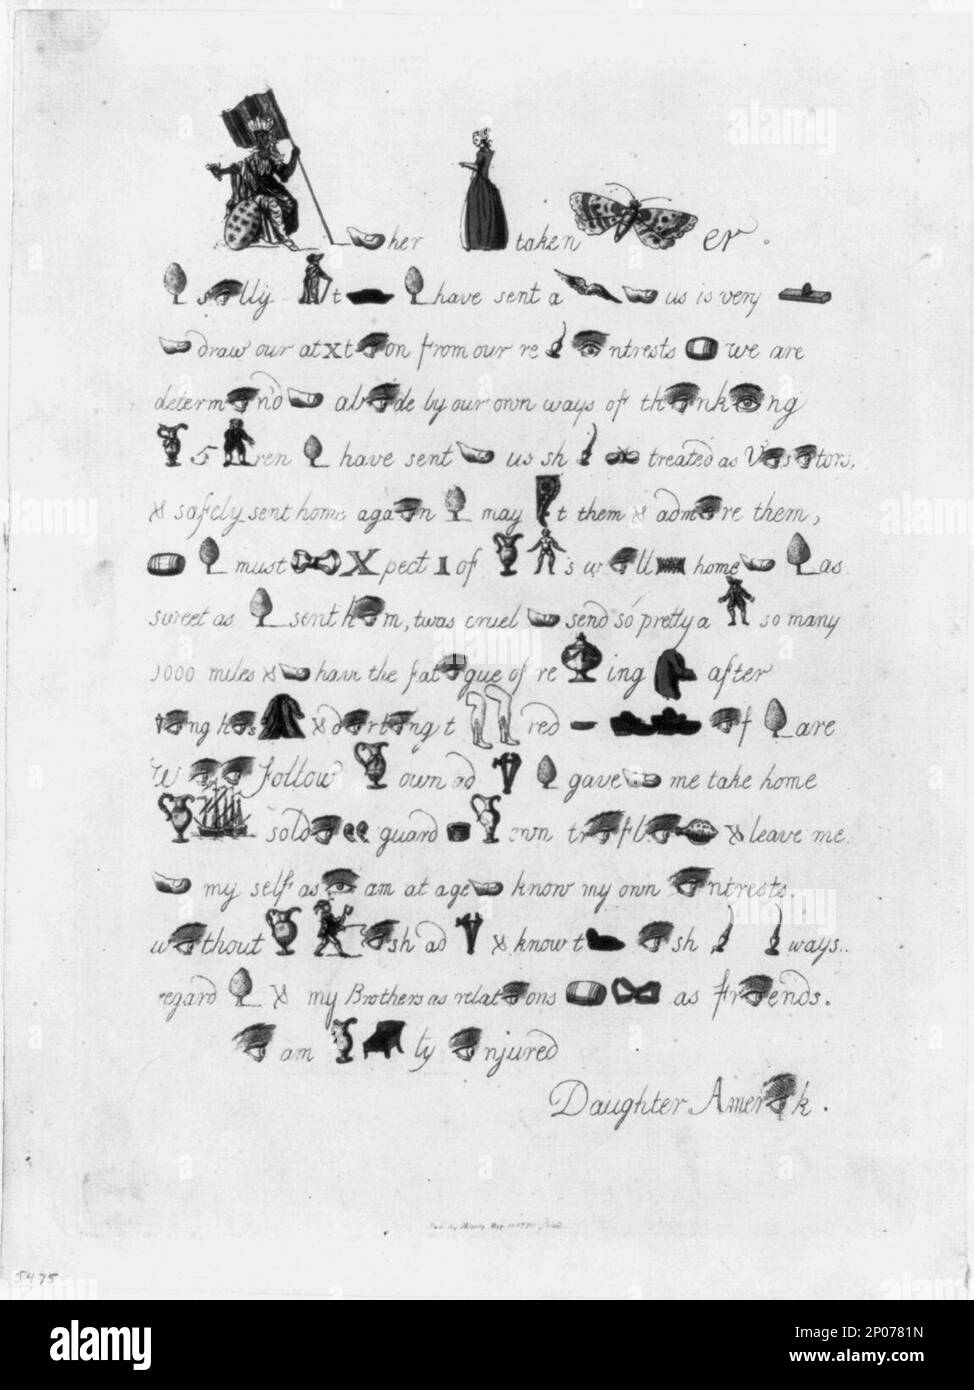 her taken er.
s lly t have sent a us is very
draw our at x t on from our re ntrests we are
determ n'd ab de by our own ways of th nk ng
5 ren have sent us sh treated as V s tors,
& safely sent home aga n may t them & adm re them,
must X pect 1 of 's w ll home as
sweet as sent h m, twas cruel send so pretty a so many
1000 miles & have the fat gue of re ing after
ng h s & d rt ng t red f are
W follow own ad gave me take home
sold guard own tr fl & leave me
my self as am at age know my own ntrests.
w thout sh ad & know t sh ways.
regard & my Brothers as relat ons as fr ends.
am ly njured
Daughter Amer k.
5475
alamy
Image ID: 2P0781N
www.alamy.com